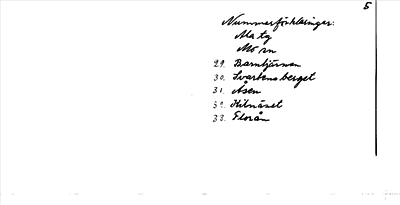 5
Nummerförklaringar:
Ma tg
Mo rn
29. Barntjärnen
30. Svartensberget
31. Åsen
32. Kilnäset
33. Florån